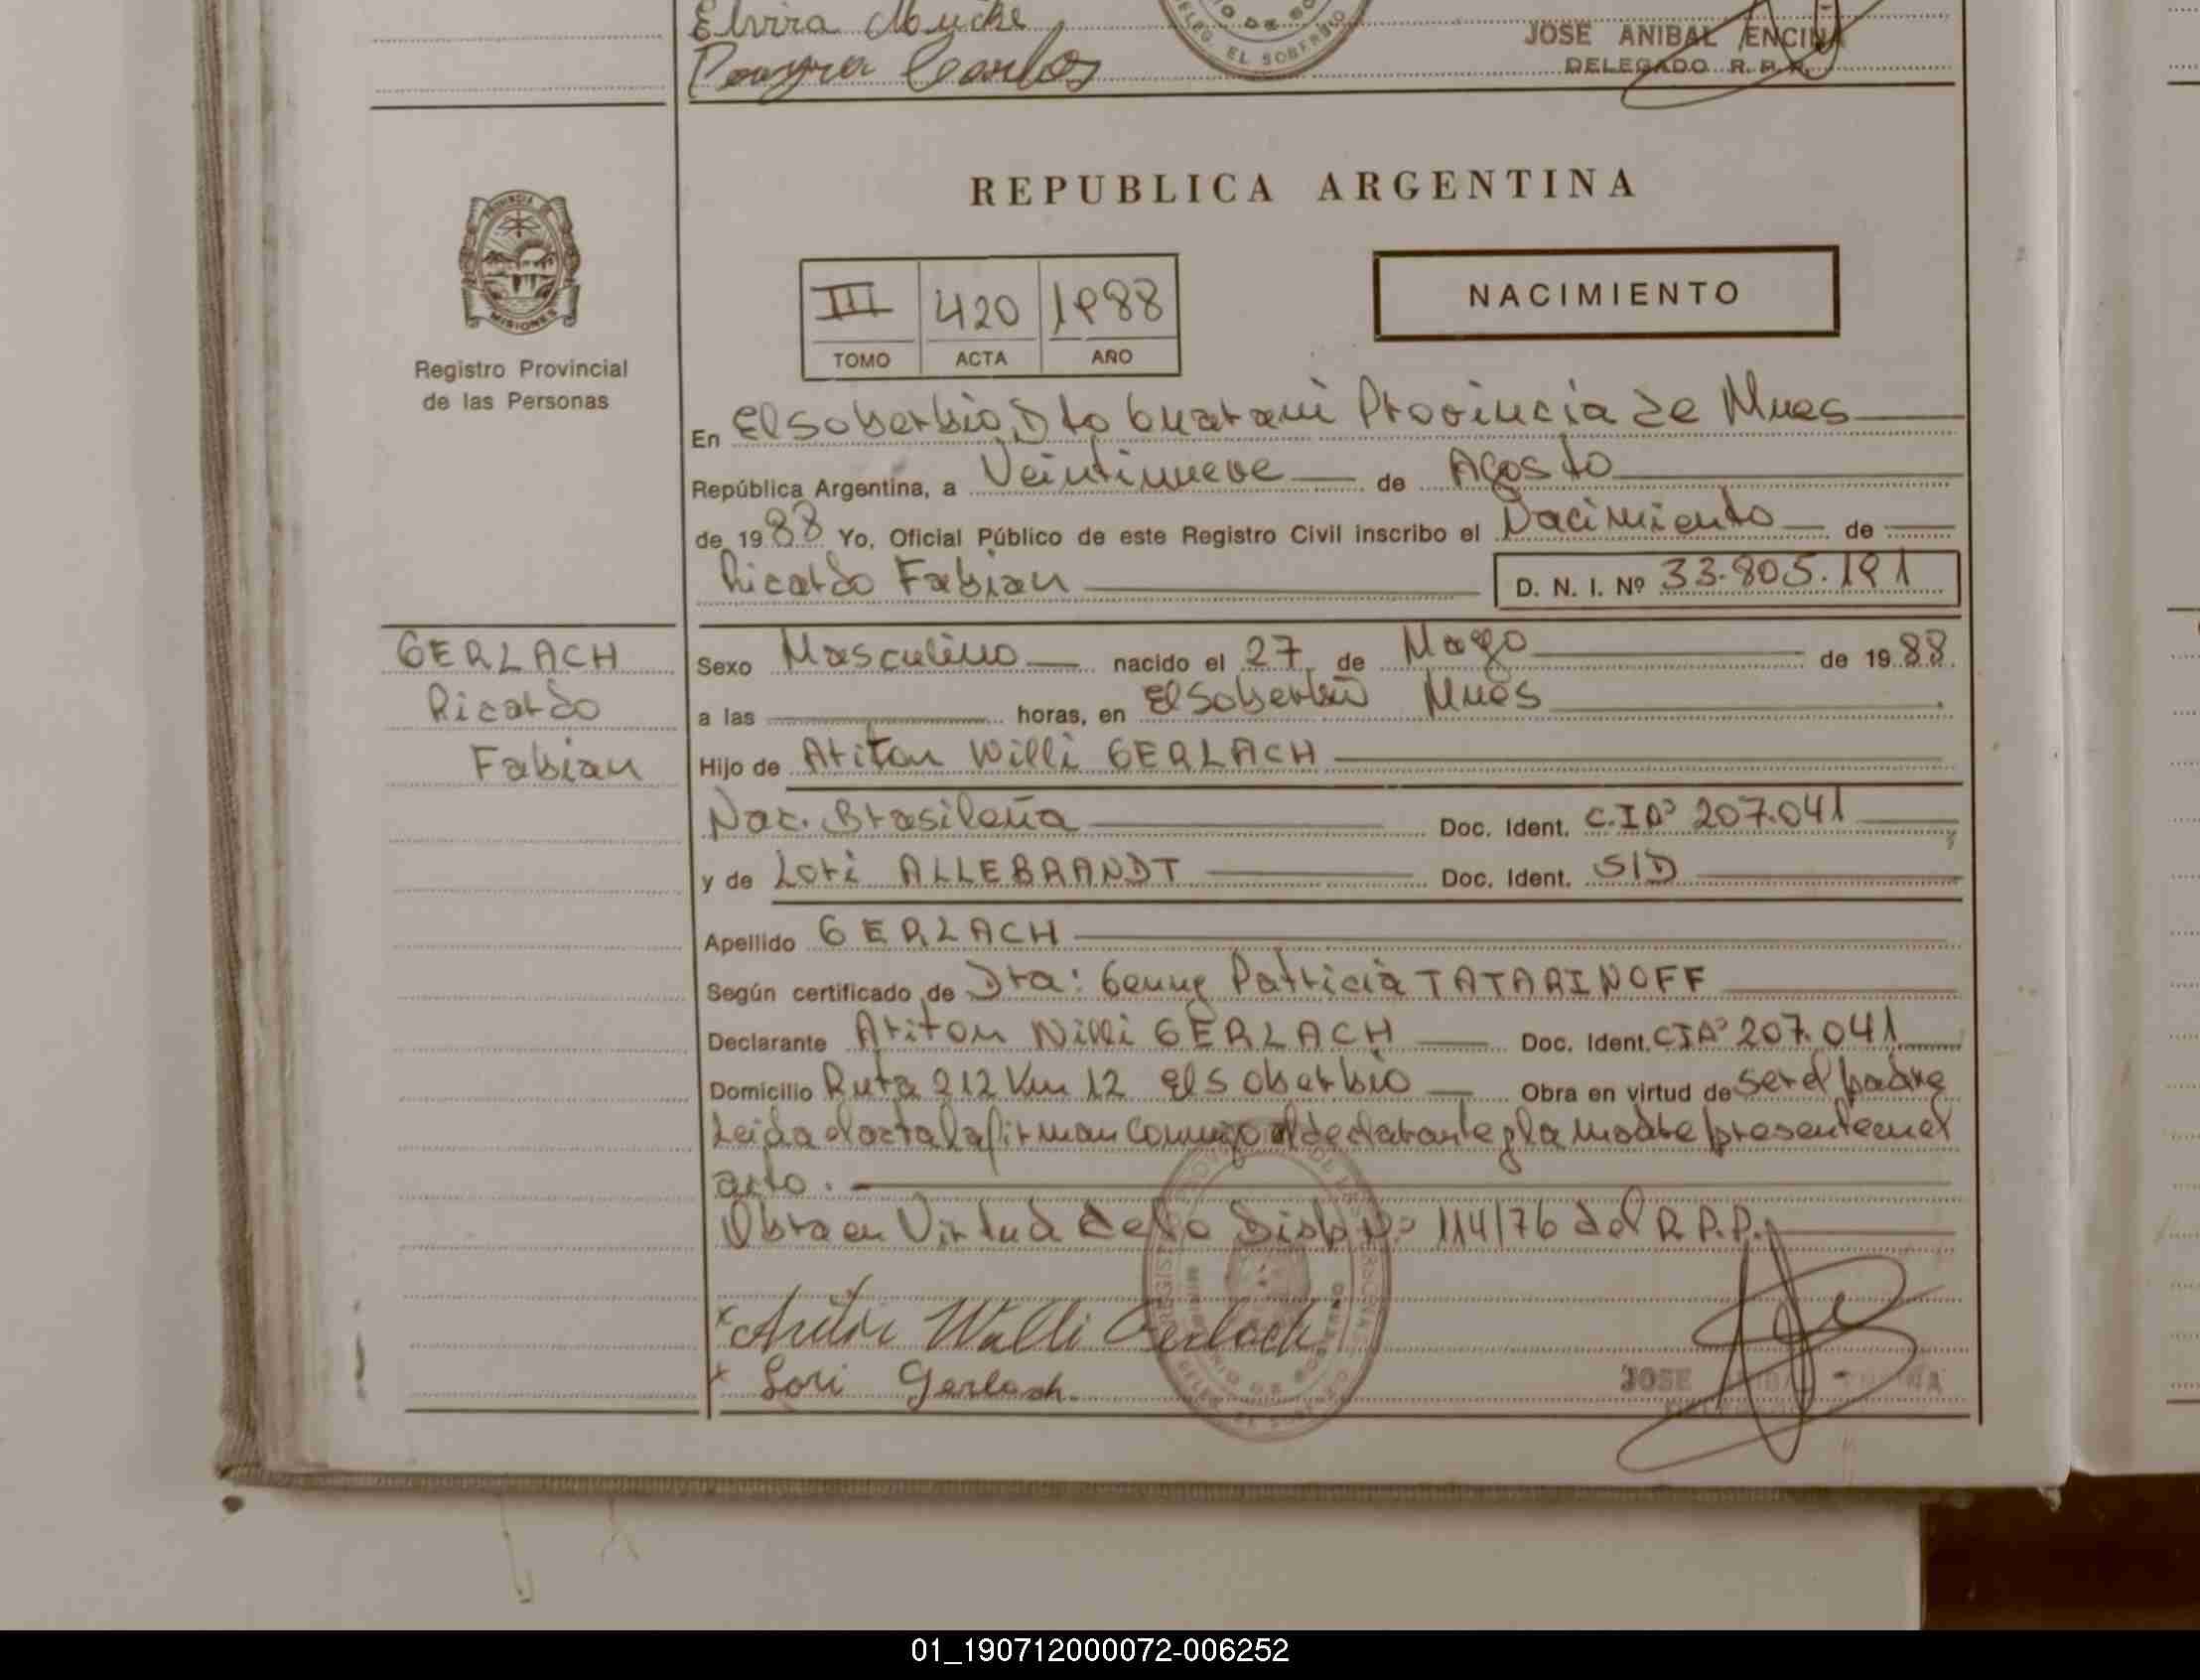 Elvira Muche
Carlos
DELEG. EL SOBERBIO
JOSE ANIBAL ENCINA
DELEGADO R. P. P.
PROVINCIA DE
MISIONES
Registro Provincial
de las Personas
REPUBLICA ARGENTINA
III 420 1988
TOMO ACTA AÑO
NACIMIENTO
En El Soberbio, Dto Guarani Provincia de Mnes
República Argentina, a Veintinueve de Agosto
de 1988 Yo, Oficial Público de este Registro Civil inscribo el Nacimiento de
Ricardo Fabian D. N. I. Nº 33.805.191
GERLACH
Ricardo
Fabian
Sexo Masculino nacido el 27 de Mayo de 1988
a las horas, en El Soberbio Mnes
Hijo de Ariton Willi GERLACH
Nac. Brasileña Doc. Ident. C.I Nº 207.041
y de Lori ALLEBRANDT Doc. Ident. S/D
Apellido GERLACH
Según certificado de Dra: Genny Patricia TATARINOFF
Declarante Ariton Willi GERLACH Doc. Ident. CI Nº 207.041
Domicilio Ruta 212 Km 12 El Soberbio Obra en virtud de ser el padre
Leida el acta la firman conmigo el declarante y la madre presente en el
acto.
Obra en Virtud de la Disp Nº 114/76 del R.P.P.
x Willi Gerlach
x Lori Gerlach.
JOSE
01_190712000072-006252